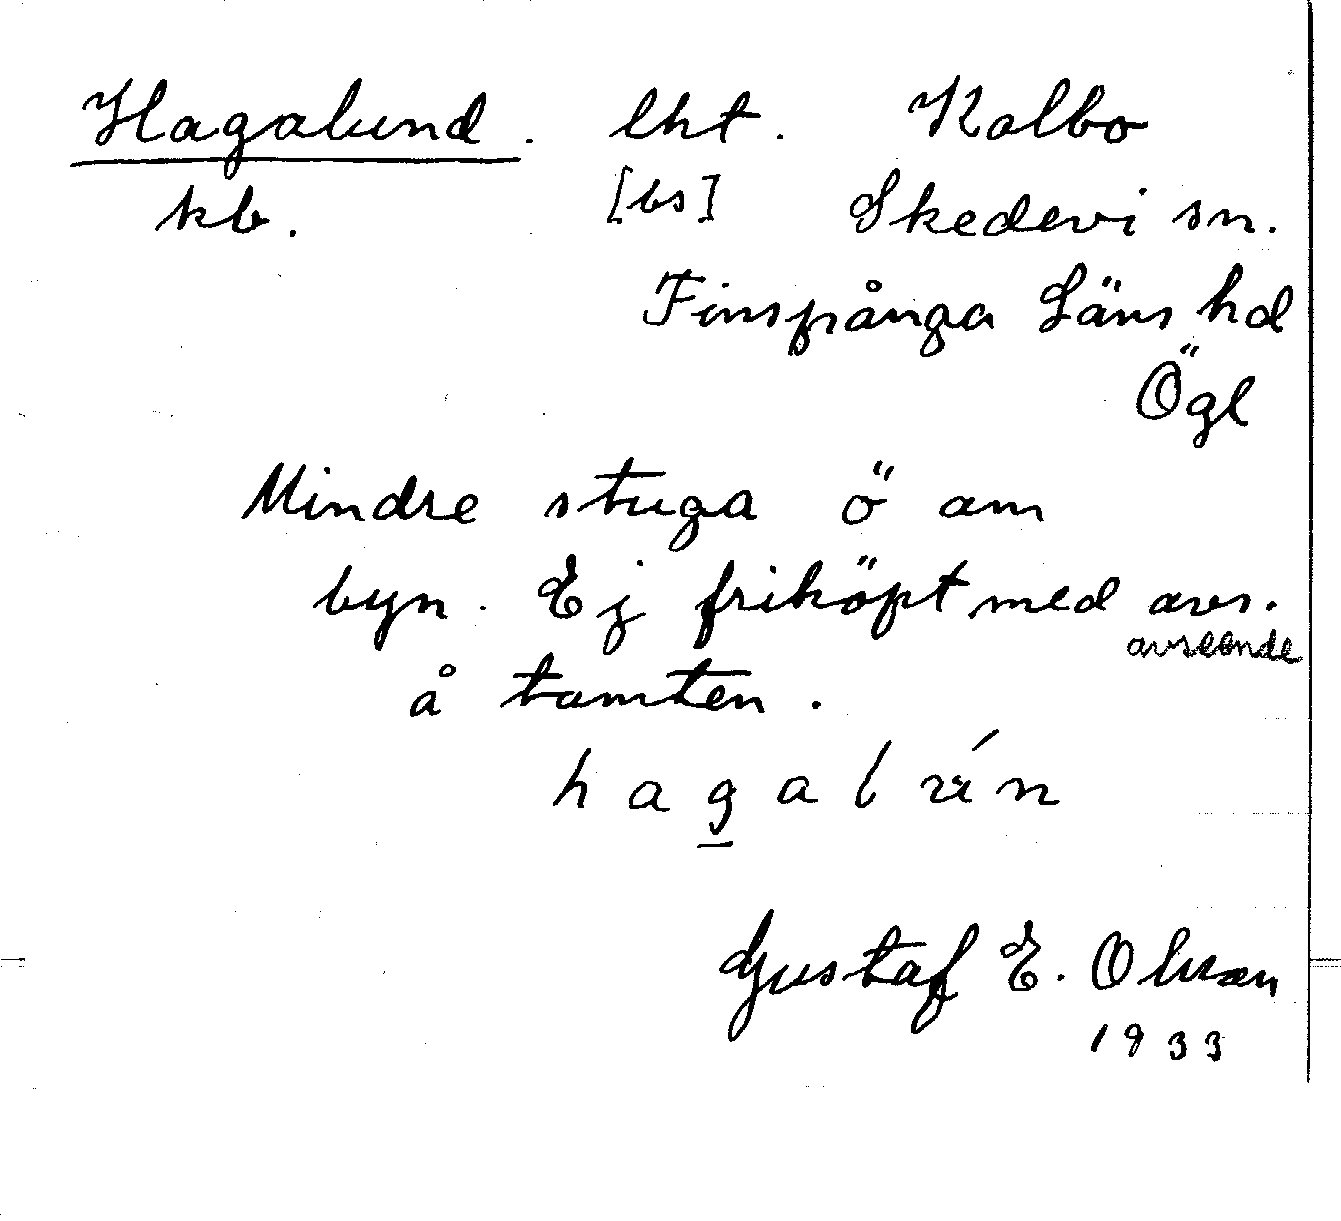 Hagalund. lht. Kalbo
kb. [bs] Skedevi sn.
Finspånga Läns hd
Ögl
Mindre stuga ö om
byn. Ej friköpt med avs.
avseende
å tomten.
hagalún
Gustaf E. Olsson
1933